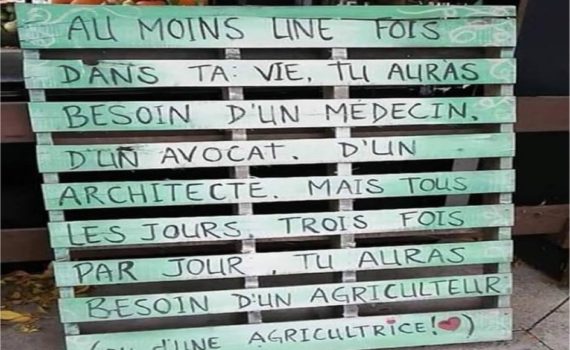 AU MOINS UNE FOIS
DANS TA: VIE, TU AURAS
BESOIN D'UN MÉDECIN.
D'UN AVOCAT. D'UN
ARCHITECTE. MAIS TOUS
LES JOURS, TROIS FOIS
PAR JOUR, TU AURAS
BESOIN D'UN AGRICULTEUR
(OU D'UNE AGRICULTRICE!❤)